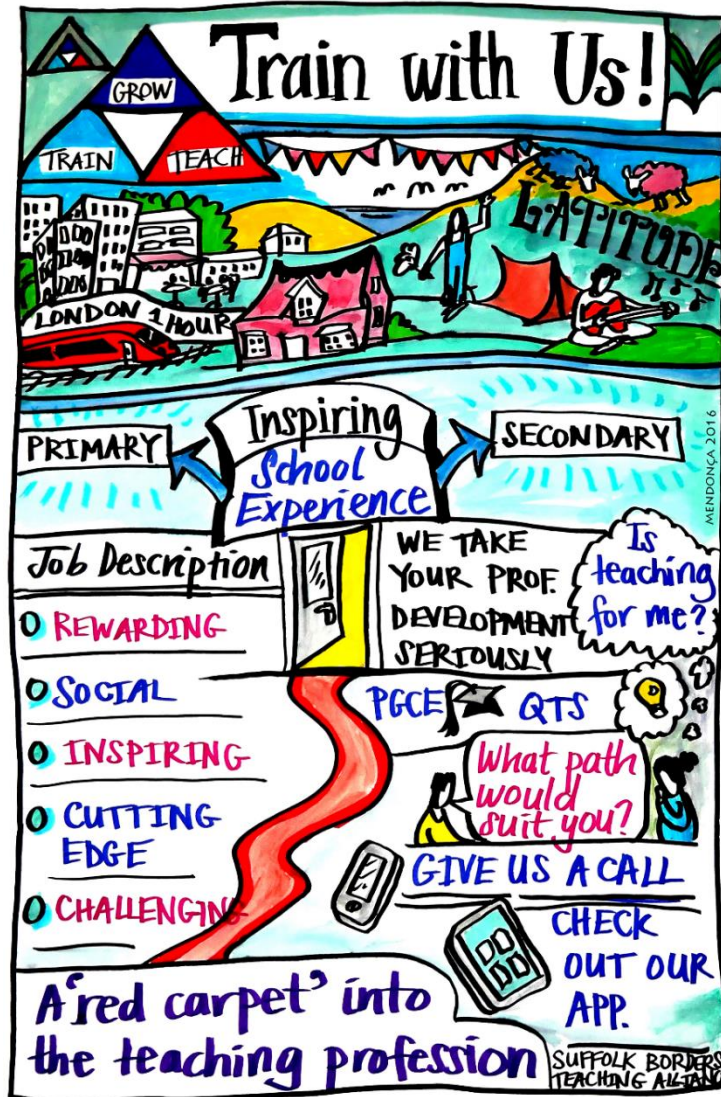 Train with Us!
GROW
TRAIN
TEACH
LATITUDE
LONDON 1 HOUR
MENDONÇA 2016
Inspiring
School
Experience
PRIMARY
SECONDARY
Job Description
REWARDING
SOCIAL
INSPIRING
CUTTING
EDGE
CHALLENGING
WE TAKE
YOUR PROF.
DEVELOPMENT
SERIOUSLY
Is
teaching
for me?
PGCE QTS
What path
would
suit you?
GIVE US A CALL
CHECK
OUT OUR
APP.
A 'red carpet' into
the teaching profession
SUFFOLK BORDERS
TEACHING ALLIANC